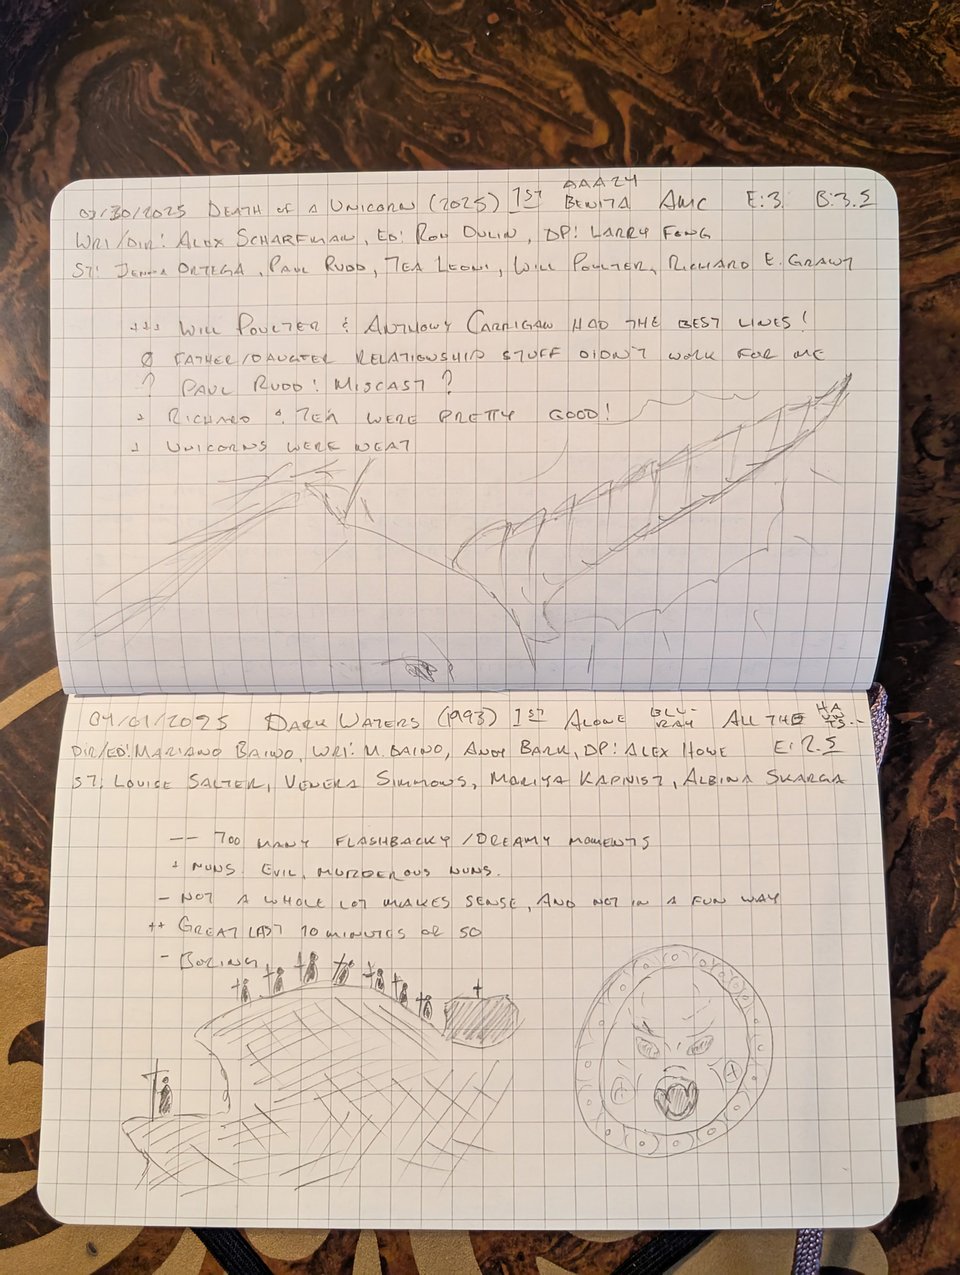 03/30/2025 DEATH OF A UNICORN (2025) 1ST AAA24 BENITA AMC E:3 B:3.5
WRI/DIR: ALEX SCHARFMAN, ED: RON DULIN, DP: LARRY FONG
ST: JENNA ORTEGA, PAUL RUDD, TEA LEONI, WILL POULTER, RICHARD E. GRANT
+++ WILL POULTER & ANTHONY CARRIGAN HAD THE BEST LINES!
Ø FATHER/DAUGTER RELATIONSHIP STUFF DIDN'T WORK FOR ME
? PAUL RUDD: MISCAST?
+ RICHARD & TEA WERE PRETTY GOOD!
+ UNICORNS WERE NEAT
04/01/2025 DARK WATERS (1993) 1ST ALONE BLU-RAY ALL THE HAUNTS...
DIR/ED: MARIANO BAINO, WRI: M. BAINO, ANDY BARK, DP: ALEX HOWE E: 2.5
ST: LOUISE SALTER, VENERA SIMMONS, MARIYA KAPNIST, ALBINA SKARGA
-- TOO MANY FLASHBACKY/DREAMY MOMENTS
+ NUNS. EVIL, MURDEROUS NUNS.
- NOT A WHOLE LOT MAKES SENSE, AND NOT IN A FUN WAY
++ GREAT LAST 10 MINUTES OR SO
- BORING